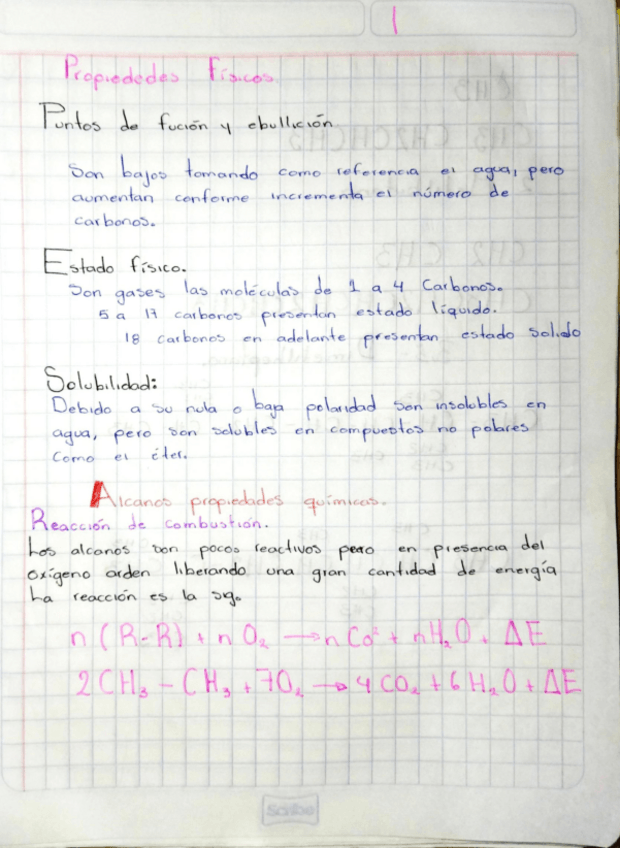 1
Propiededes Físicas
Puntos de fución y ebullición
Son bajos tomando como referencia el agua, pero
aumentan conforme incrementa el número de
carbonos.
Estado físico.
Son gases las moléculas de 1 a 4 Carbonos.
5 a 17 carbonos presentan estado líquido.
18 carbonos en adelante presentan estado solido
Solubilidad:
Debido a su nula o baja polaridad son insolubles en
agua, pero son solubles en compuestos no polares
como el éter.
Alcanos propiedades químicas.
Reacción de combustión.
Los alcanos son pocos reactivos pero en presencia del
oxígeno arden liberando una gran cantidad de energía
La reacción es la sig.
n (R-R) + n O₂ → n Co² + n H₂O + ΔE
2CH₃ - CH₃ + 7O₂ → 4 CO₂ + 6 H₂O + ΔE
Scribe